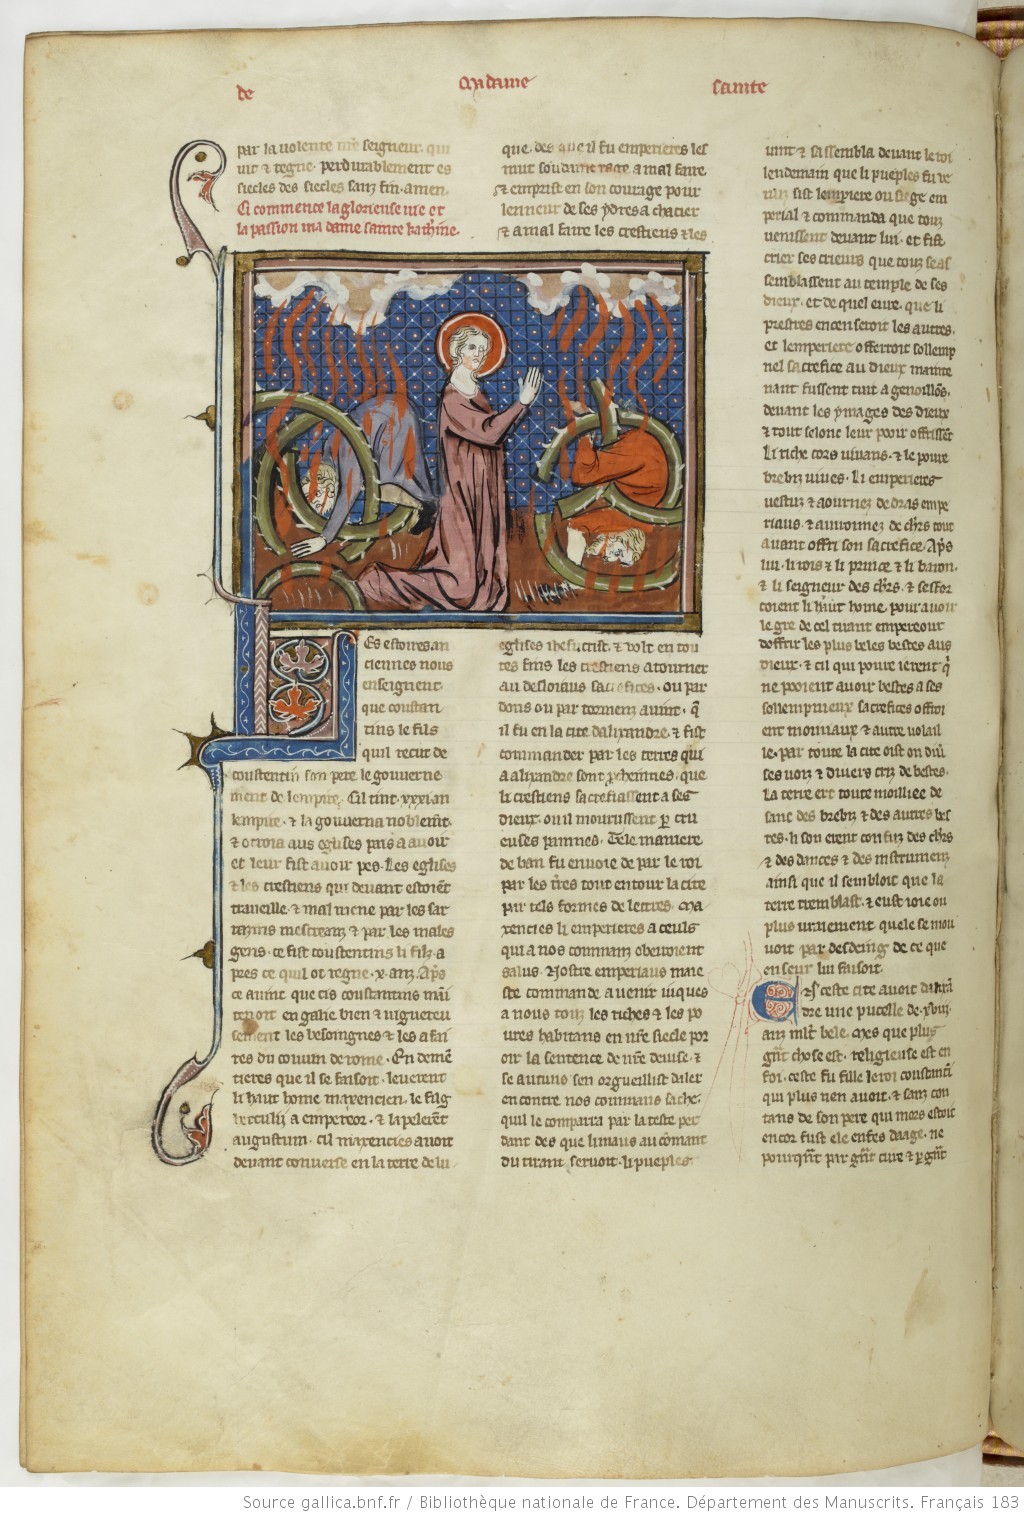 de Madame sainte
par la volente n̄re seigneur. qui
vit ⁊ regne. perdurablement es
siecles des siecles sanz fin. amen.
Ci commence la glorieuse vie et
la passion ma dame sainte kath̾ine.
Les estoires an
ciennes nous
enseignent.
que constan
tins le filz
quil recut de
constentin son pere le gouuerne
ment de lempire. Cil tint .xxxi an
lempire. ⁊ la gouuerna noblemt̄.
⁊ otroia aus eglises pais a auoir
et leur fist auoir pes. Les eglises
⁊ les crestiens qui deuant estoiēt
traueillie ⁊ mal mene par les sar
razins mescreanz ⁊ par les males
gens. ce fist constentins li filz. a
pres ce quil ot regne .x. anz. Ap̄s
ce auint que cis constantins mai
tenoit en galie bien ⁊ viguereu
sement les besoingnes ⁊ les afai
res du commun de rome. En demē
tieres que il se faisoit. leuerent
li haut home maxencien. le filz
herculij a empereor. ⁊ lapelerēt
augustum. cil maxencies auoit
deuant conuerse en la terre de lu
que. des que il fu emperieres les
mut soudainement a mal faire
⁊ emprist en son courage pour
lenneur de ses ydres a chacier
⁊ a mal faire les crestiens ⁊ les
eglises ihesucrist. ⁊ volt en tou
tes fins les crestiens atourner
au desloiaus sacrefices. ou par
dons ou par tormenz auint. q̄
il fu en la cite dalixandre. ⁊ fist
commander par les terres qui
a alixandre sont prochiennes. que
li crestiens sacrefiassent a ses
dieux. ou il mourussent p̱ cru
euses painnes. Tele maniere
de ban fu enuoie de par le roi
par les t̾res tout entour la cite
par tels formes de lettres. Ma
xencies li emperieres a ceuls
qui a nos commanz obeissent
salus. Nostre emperiaus maie
ste commande a venir iuques
a nous touz les riches ⁊ les po
ures habitans en nr̄e siecle por
oir la sentence de nr̄e deuise. ⁊
se aucuns sen orgueillist daler
encontre nos commans sache.
quil le comparra par la teste per
dant des que li maus au cōmant
du tirant seruoit. li pueples
vint ⁊ sassembla deuant le roi
lendemain que li pueples fu ve
nuz sist lempiere ou siege em
perial ⁊ commanda que touz
venissent deuant lui. et fist
crier ses crieurs que touz seas
semblassent au temple de ses
dieux. et de quel eure. que li
prestres encenseroit les autres.
et lemperiere offerroit sollemp
nel sacrefice au dieux mainte
nant fussent tuit a genoillōs.
deuant les ymages des dieux
⁊ tout selonc leur pooir offrissēt
Li riche cors viuans. ⁊ le poure
brebiz viues. Li emperieres
vestuz ⁊ aournez de dras empe
riaus. ⁊ auironnez de ch̾rs tout
auant offri son sacrefice. Ap̄s
lui. li rois ⁊ li prince ⁊ li baron.
⁊ li seigneur des ch̾rs. ⁊ sesfor
coient li haut home pour auoir
le gre de cel tirant empereour
doffrir les plus beles bestes aus
dieux. ⁊ cil qui poure ierent q̄
ne pooient auoir bestes a ses
sollempnieux sacrefices offroi
ent moniaux ⁊ autre volail
le. par toute la cite oist on diū
ses voiz ⁊ diuers criz de bestes.
La terre ert toute moilliee de
sanc des brebiz ⁊ des autres bes
tes. li son erent confuz des ch̾rs
⁊ des dances ⁊ des instrumenz
ainsi que il sembloit que la
terre tremblast. ⁊ eust ioie ou
plus vraiement quele se mou
uoit par desdeing de ce que
en seur lui faisoit.
En ceste cite auoit dalixā
dre une pucelle de .xviij.
anz ml̄t bele. Mes que plus
grāt chose est. religieuse est en
foi. ceste fu fille le roi constanci
qui plus nen auoit. ⁊ sanz con
tans de son pere qui mors estoit
encor fust ele enfes daage. ne
pourquāt par grāt cure ⁊ p̱ grāt
Source gallica.bnf.fr / Bibliothèque nationale de France. Département des Manuscrits. Français 183